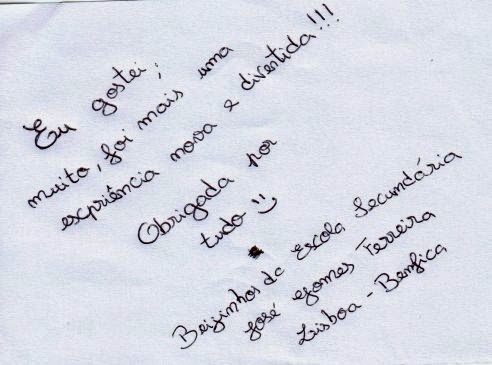 Eu gostei;
muito, foi mais uma
expriência nova e divertida!!!
Obrigada por
tudo =)
Beijinhos da Escola Secundária
José Gomes Ferreira
Lisboa - Benfica